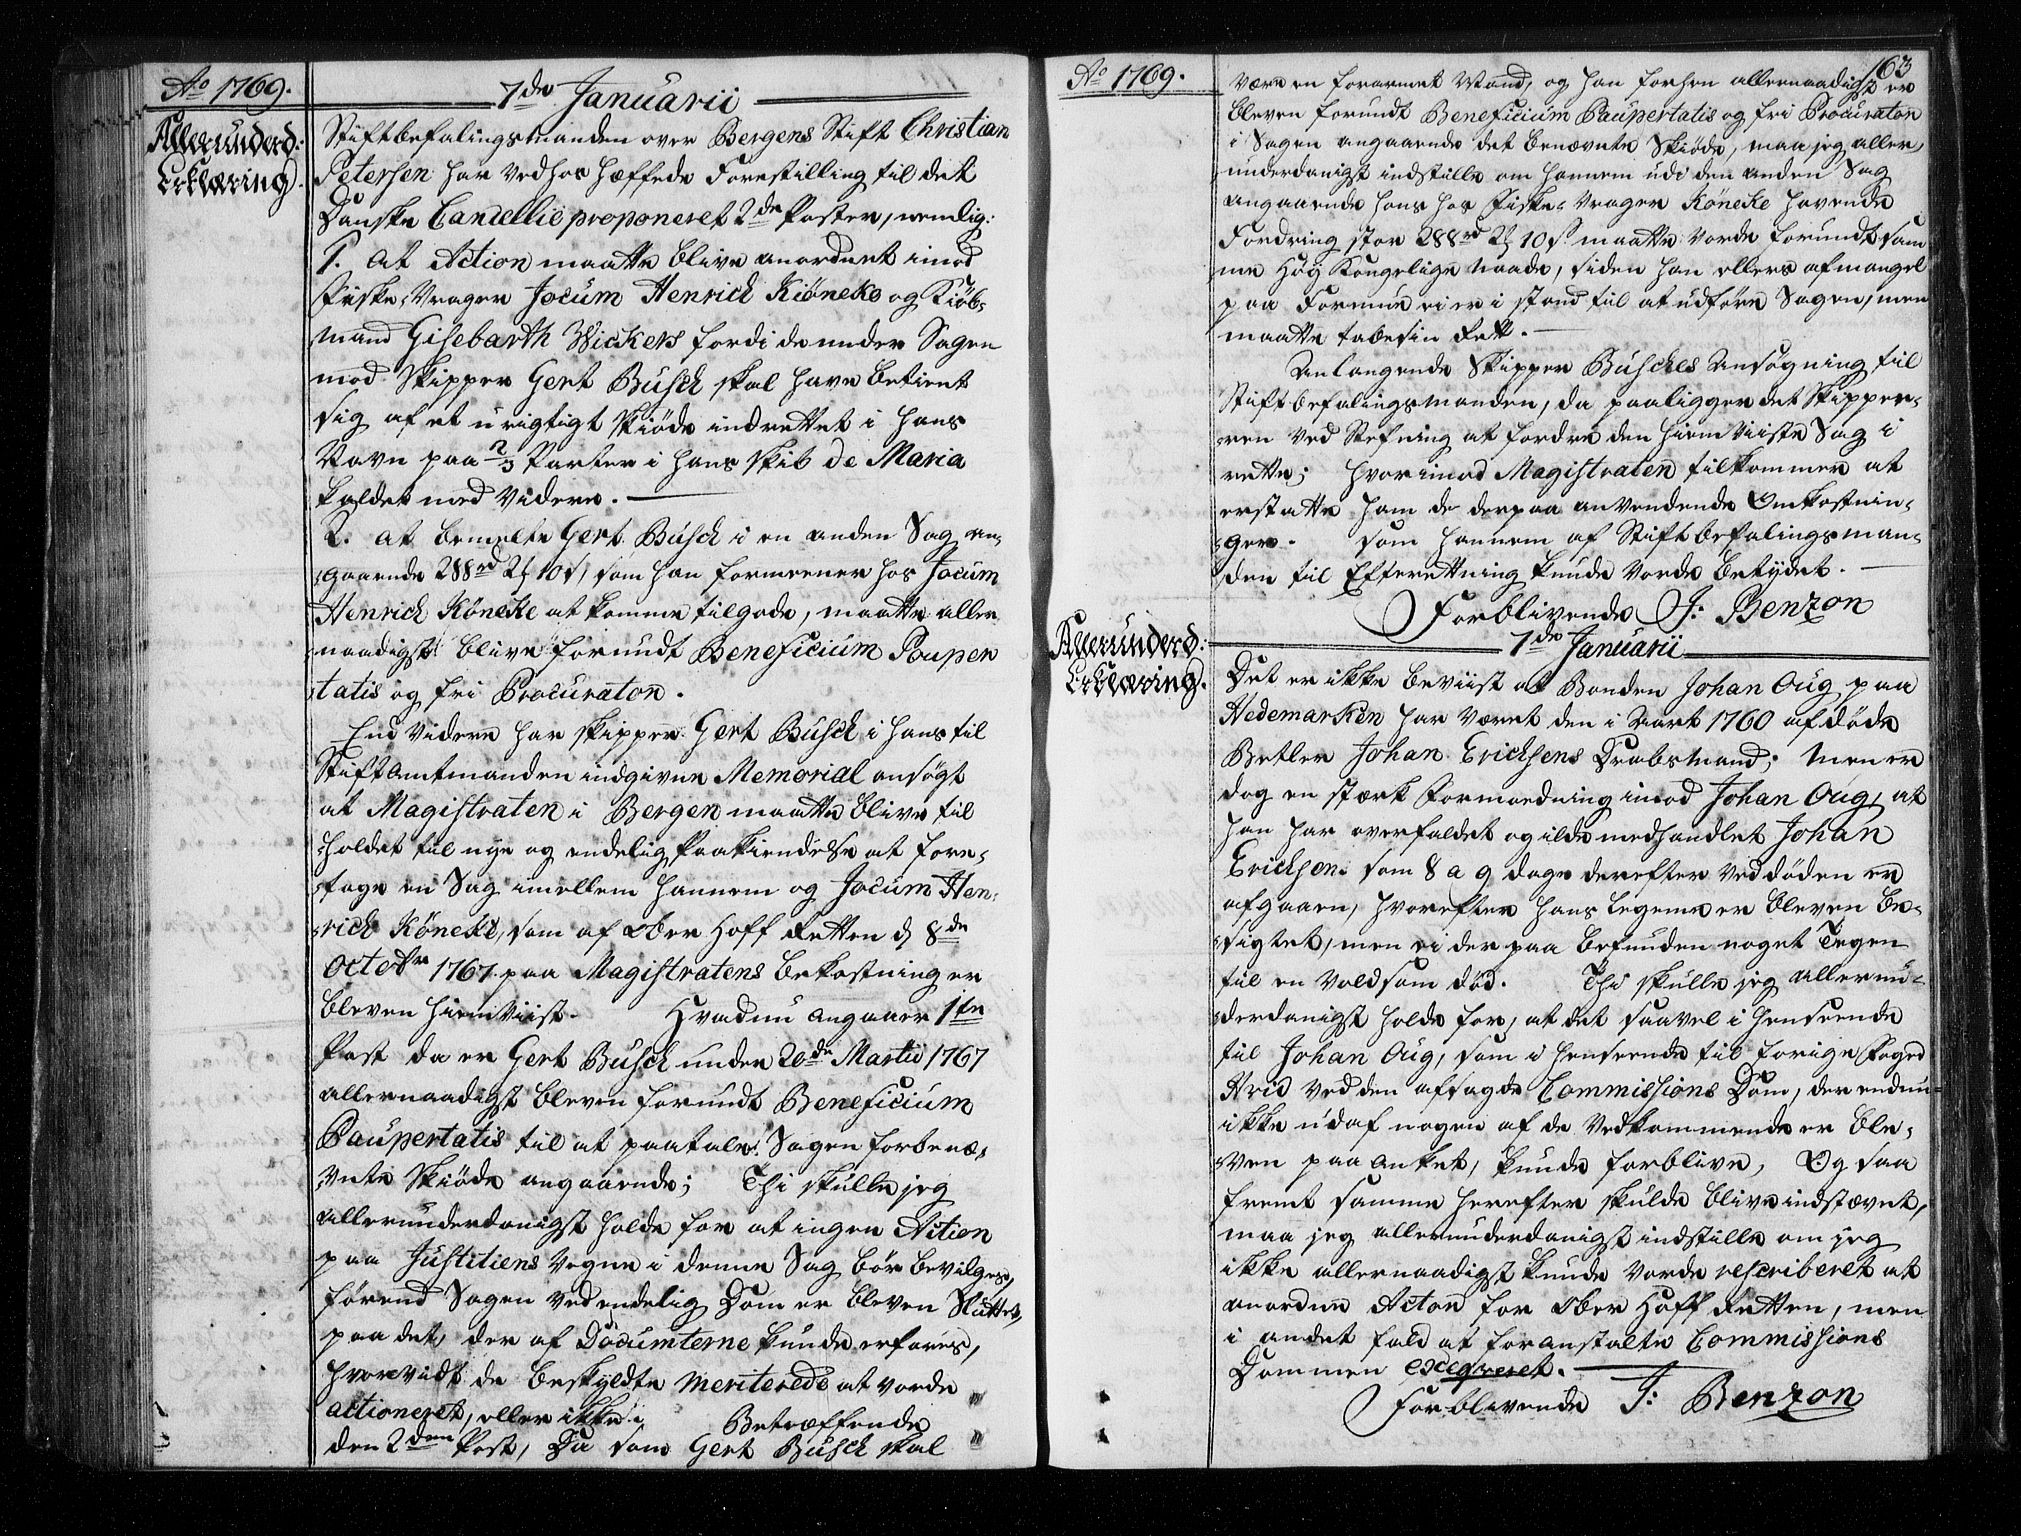 Ao 1769.
7de Januarii
Allerunderd:
Erklæring.
Stiftbefalingsmanden over Bergens Stift Christian
Petersen har vedhos hæftede Forestilling til det
Danske Cancellie proponeret 2de Poster, nemlig:
1. At Action maatte blive anordnet imod
Fiske-Vrager Jocum Henrich Kiöneke og Kiöb-
mand Gisebarth Wickers fordi de under Sagen
mod Skipper Gert Busch skal have betient
sig af et urigtigt Skiöde indrettet i hans
Navn paa 2/3 Parter i hans Skib de Maria
kaldet med videre.
2. At bemelte Gert Busch i en anden Sag an-
gaaende 288 rd 2 10 s, som han formeener hos Jocum
Henrich Köneke at komme tilgode, maatte aller
naadigst blive forundt Beneficium Pauper
tatis og fri Procurator.
End videre har Skipper Gert Busch i hans til
Stiftamtmanden indgivne Memorial ansögt
at Magistraten i Bergen maatte blive til
holdet til nye og endelig Paakiendelse at fore-
tage en Sag imellem hannem og Jocum Hen-
rich Köneke, som af Ober Hoff Retten d 8de
Octobr 1767 paa Magistratens Bekostning er
bleven hiemviist. Hvad nu angaaer 1te
Post da er Gert Busch under 20de Martii 1767
allernaadigst bleven forundt Beneficium
Paupertatis til at paatale Sagen forbenæ-
vnte Skiöde angaaende; Thi skulle jeg
allerunderdanigst holde for at ingen Action
paa Justitiens Vegne i denne Sag bör bevilges,
förend Sagen ved endelig Dom er bleven sluttet,
paa det, der af Documterne kunde erfares,
hvorvidt de beskyldte meriterede at vorde
actioneret, eller ikke; Betræffende
den 2den Post, Da som Gert Busch skal
Ao 1769.
163
være en forarmet Mand, og han forhen allernaadigst er
bleven forundt Beneficium Paupertatis og fri Procurator
i Sagen angaaende det benævnte Skiöde, maa jeg aller,
underdanigst indstille om hannem udi den anden Sag
angaaende hans hos Fiske-Vrager Köneke havende
Fordring stor 288 rd 2 10 s. maatte vorde forundt sam
me Höy Kongelige Naade, siden han ellers af mangel
paa Formue ei er i stand til at udföre Sagen, men
maatte tabe sin Rett.
Anlangende Skipper Busches Ansögning til
Stiftbefalingsmanden, da paaligger det Skippe-
ren ved Stefning at fordre den hiemviiste Sag i
rette; hvorimod Magistraten tilkommer at
erstatte ham de derpaa anvendende Omkostnin-
ger. som hannem af Stiftbefalingsman-
den til Efterretning kunde vorde betydet.
Forblivende J: Benzon
7de Januarii
Allerunderd:
Erklæring.
Det er ikke beviist at Bonden Johan Oug paa
Hedemarken har været den i Aaret 1760 afdöde
Betler Johan Erichsens Drabsmand; men er
dog en stærk Formodning imod Johan Oug, at
han har overfaldet og ilde medhandlet Johan
Erichsen. som 8 a 9 dage derefter ved döden er
afgaaen, hvorefter hans Legeme er bleven be-
sigtet, men ei derpaa befunden noget Tegen
til en voldsom död. Thi skulle jeg allerun-
derdanigst holde for, at det saavel i henseende
til Johan Oug, som i henseende til forige Foged
Arid ved den afsagde Commissions Dom, der endnu
ikke udaf nogen af de Vedkommende er ble-
ven paa anket, kunde forblive, Og saa
fremt samme herefter skulde blive indstævnet,
maa jeg allerunderdanigst indstille om jeg
ikke allernaadigst kunde vorde rescriberet at
anordne Actor for Ober Hoff Retten, men
i andet fald at foranstalte Commissions
Dommen exeqveret.
Forblivende J: Benzon